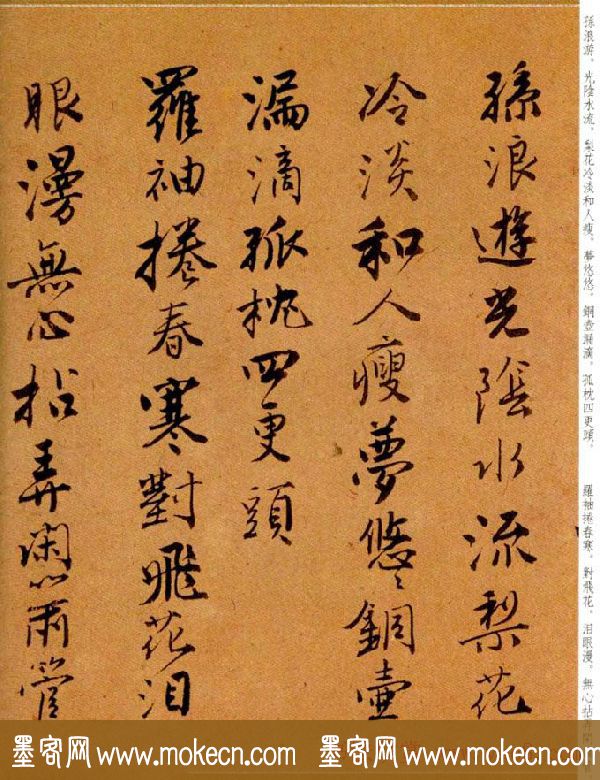 孫浪游、光陰水流、梨花冷淡和人瘦。夢悠悠、銅壺漏滴、孤枕四更頭。 羅袖捲春寒、對飛花、泪眼漫、無心拈
孫浪遊光陰水流梨花
冷淡和人瘦夢悠〻銅壺
漏滴孤枕四更頭
羅袖捲春寒對飛花泪
眼漫無心拈弄閑簫管
墨客网 www.mokecn.com 墨客网 www.mokecn.com